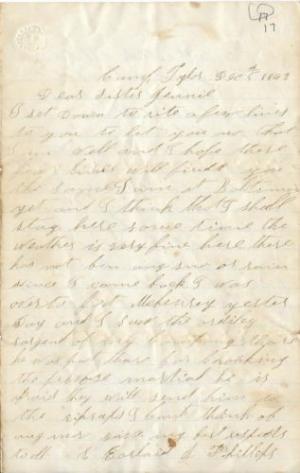 17
Camp Tylor Dec 1862
Dear Sister Jennie
I set down to rite a few lines
to you to let you no that
I am well and I hope these
few lines will finde you
the same I am at Baltimore
yet and I think that I shall
stay here some time the
weather is very fine here there
has not ben any snow or rain
since I come back I was
over to fort Mckenrey yester
day and I saw the ordiley
sargent of my company thare
he was put thare for breaking
the martial he is
fraid they will send him to
the ripraps I cant think of
any mor give my best respects
to all E Phillips